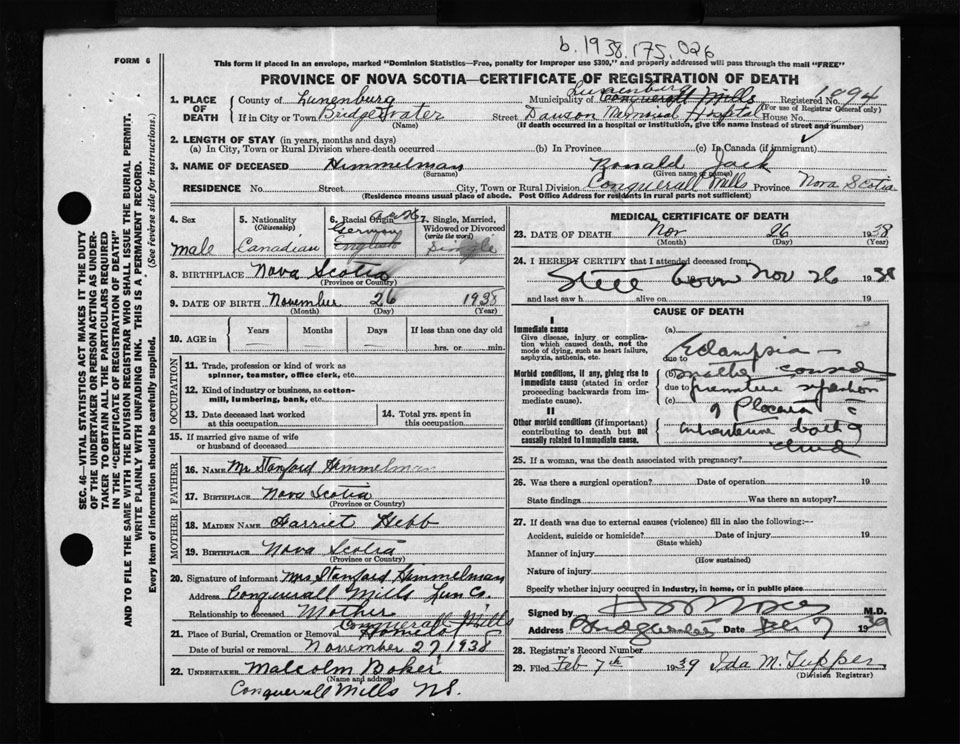 b. 1938. 175. 026
FORM 6
This form if placed in an envelope, marked "Dominion Statistics—Free, penalty for improper use $300," and properly addressed will pass through the mail "FREE"
PROVINCE OF NOVA SCOTIA—CERTIFICATE OF REGISTRATION OF DEATH
1. PLACE OF DEATH
County of Lunenburg Municipality of Conquerall Mills Lunenburg Registered No. 1094
(For use of Registrar General only)
If in City or Town Bridgewater Street Dawson Memorial Hospital House No.
(Name) (If death occurred in a hospital or institution, give the name instead of street and number)
2. LENGTH OF STAY (in years, months and days)
(a) In City, Town or Rural Division where death occurred (b) In Province (c) In Canada (if immigrant)
3. NAME OF DECEASED Himmelman Ronald Jack
(Surname) (Given name or names)
RESIDENCE No. Street City, Town or Rural Division Conquerall Mills Province Nova Scotia
(Residence means usual place of abode. Post Office Address for residents in rural parts not sufficient)
4. Sex
Male
5. Nationality
(Citizenship)
Canadian
6. Racial Origin
Germany
English
7. Single, Married, Widowed or Divorced
(write the word)
Single
8. BIRTHPLACE Nova Scotia
(Province or Country)
9. DATE OF BIRTH November 26 1938
(Month) (Day) (Year)
10. AGE in Years Months Days If less than one day old
hrs. or min.
OCCUPATION
11. Trade, profession or kind of work as
spinner, teamster, office clerk, etc.
12. Kind of industry or business, as cotton-
mill, lumbering, bank, etc.
13. Date deceased last worked
at this occupation
14. Total yrs. spent in
this occupation
15. If married give name of wife
or husband of deceased
FATHER
16. NAME Mr Stanford Himmelman
17. BIRTHPLACE Nova Scotia
(Province or Country)
MOTHER
18. MAIDEN NAME Harriet Hebb
19. BIRTHPLACE Nova Scotia
(Province or Country)
20. Signature of informant Mrs Stanford Himmelman
Address Conquerall Mills Lun Co.
Relationship to deceased Mother
21. Place of Burial, Cremation or Removal Conquerall Mills
Date of burial or removal November 27 1938
22. UNDERTAKER Malcolm
(Name and address)
Conquerall Mills NS.
MEDICAL CERTIFICATE OF DEATH
23. DATE OF DEATH Nov 26 1938
(Month) (Day) (Year)
24. I HEREBY CERTIFY that I attended deceased from:
Still born Nov 26 1938
and last saw h alive on 19
CAUSE OF DEATH
I
Immediate cause
Give disease, injury or complication which caused death, not the mode of dying, such as heart failure, asphyxia, asthenia, etc.
Morbid conditions, if any, giving rise to immediate cause (stated in order proceeding backwards from immediate cause).
II
Other morbid conditions (if important) contributing to death but not causally related to immediate cause.
(a)
Eclampsia
due to
(b)
due to premature
(c)
intrauterine death of
child
25. If a woman, was the death associated with pregnancy?
26. Was there a surgical operation? Date of operation 19
State findings Was there an autopsy?
27. If death was due to external causes (violence) fill in also the following:—
Accident, suicide or homicide? Date of injury 19
(State which)
Manner of injury
(How sustained)
Nature of injury
Specify whether injury occurred in Industry, in home, or in public place
Signed by M.D.
Address Bridgewater Date 1939
28. Registrar's Record Number
29. Filed Feb 7th 1939 Ida M. Tupper
(Division Registrar)
SEC. 46—VITAL STATISTICS ACT MAKES IT THE DUTY
OF THE UNDERTAKER OR PERSON ACTING AS UNDER-
TAKER TO OBTAIN ALL THE PARTICULARS REQUIRED
IN THE "CERTIFICATE OF REGISTRATION OF DEATH"
AND TO FILE THE SAME WITH THE DIVISION REGISTRAR WHO SHALL ISSUE THE BURIAL PERMIT.
WRITE PLAINLY WITH UNFADING INK. THIS IS A PERMANENT RECORD.
Every item of information should be carefully supplied. (See reverse side for instructions.)